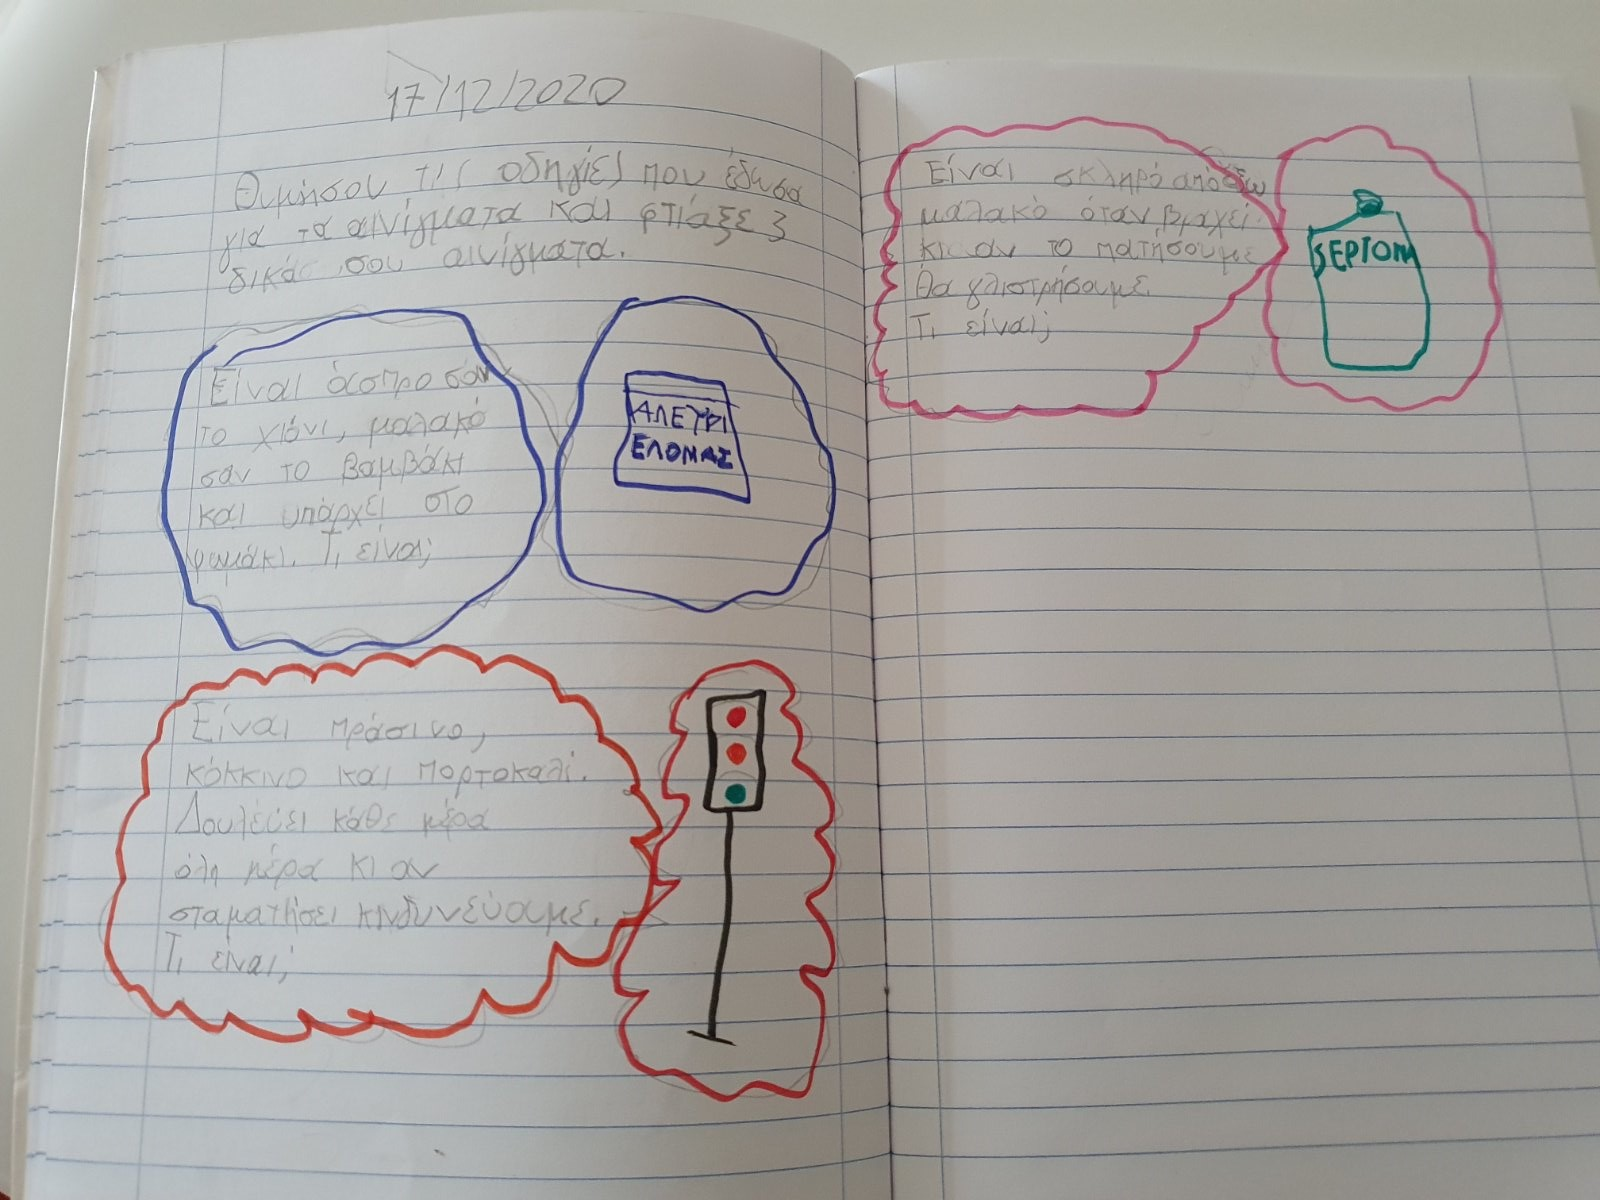 17/12/2020
Θυμήσου τις οδηγίες που έδωσα
για τα αινίγματα και φτιάξε 3
δικά σου αινίγματα.
Είναι άσπρο σαν
το χιόνι, μαλακό
σαν το βαμβάκι
και υπάρχει στο
ψωμάκι. Τι είναι;
ΑΛΕΥΡΙ
ΕΛΟΜΑΣ
Είναι πράσινο,
κόκκινο και πορτοκαλί.
Δουλεύει κάθε μέρα
όλη μέρα κι αν
σταματήσει κινδυνεύουμε.
Τι είναι;
Είναι σκληρό απέξω
μαλακό όταν βραχεί
κι αν το πατήσουμε
θα γλιστρήσουμε.
Τι είναι;
SEPTOM